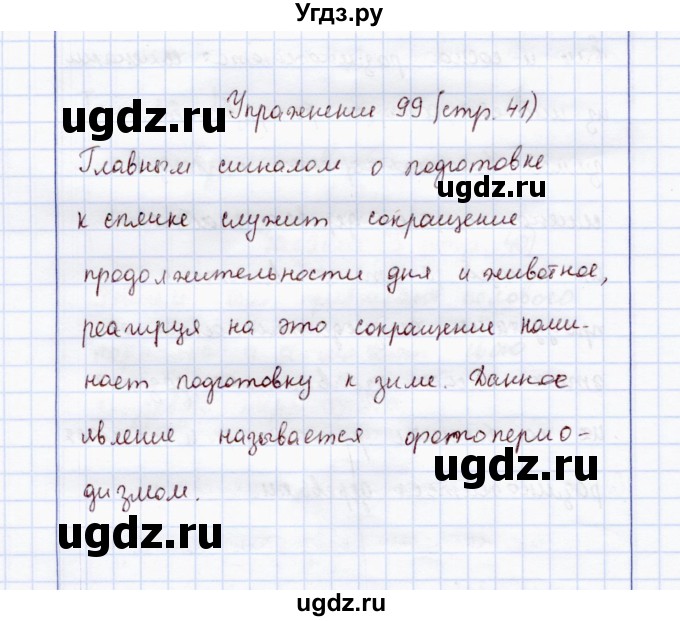 Угдз.ру
Упражнение 99 (стр. 41)
ugdz.ru
Главным сигналом о подготовке
ugdz.ru
к спячке служит сокращение
продолжительности дня и животное,
реагируя на это сокращение начи-
нает подготовку к зиме. Данное
явление называется фотоперио-
ugdz.ru
дизмом.
ugdz.ru
ugdz.ru